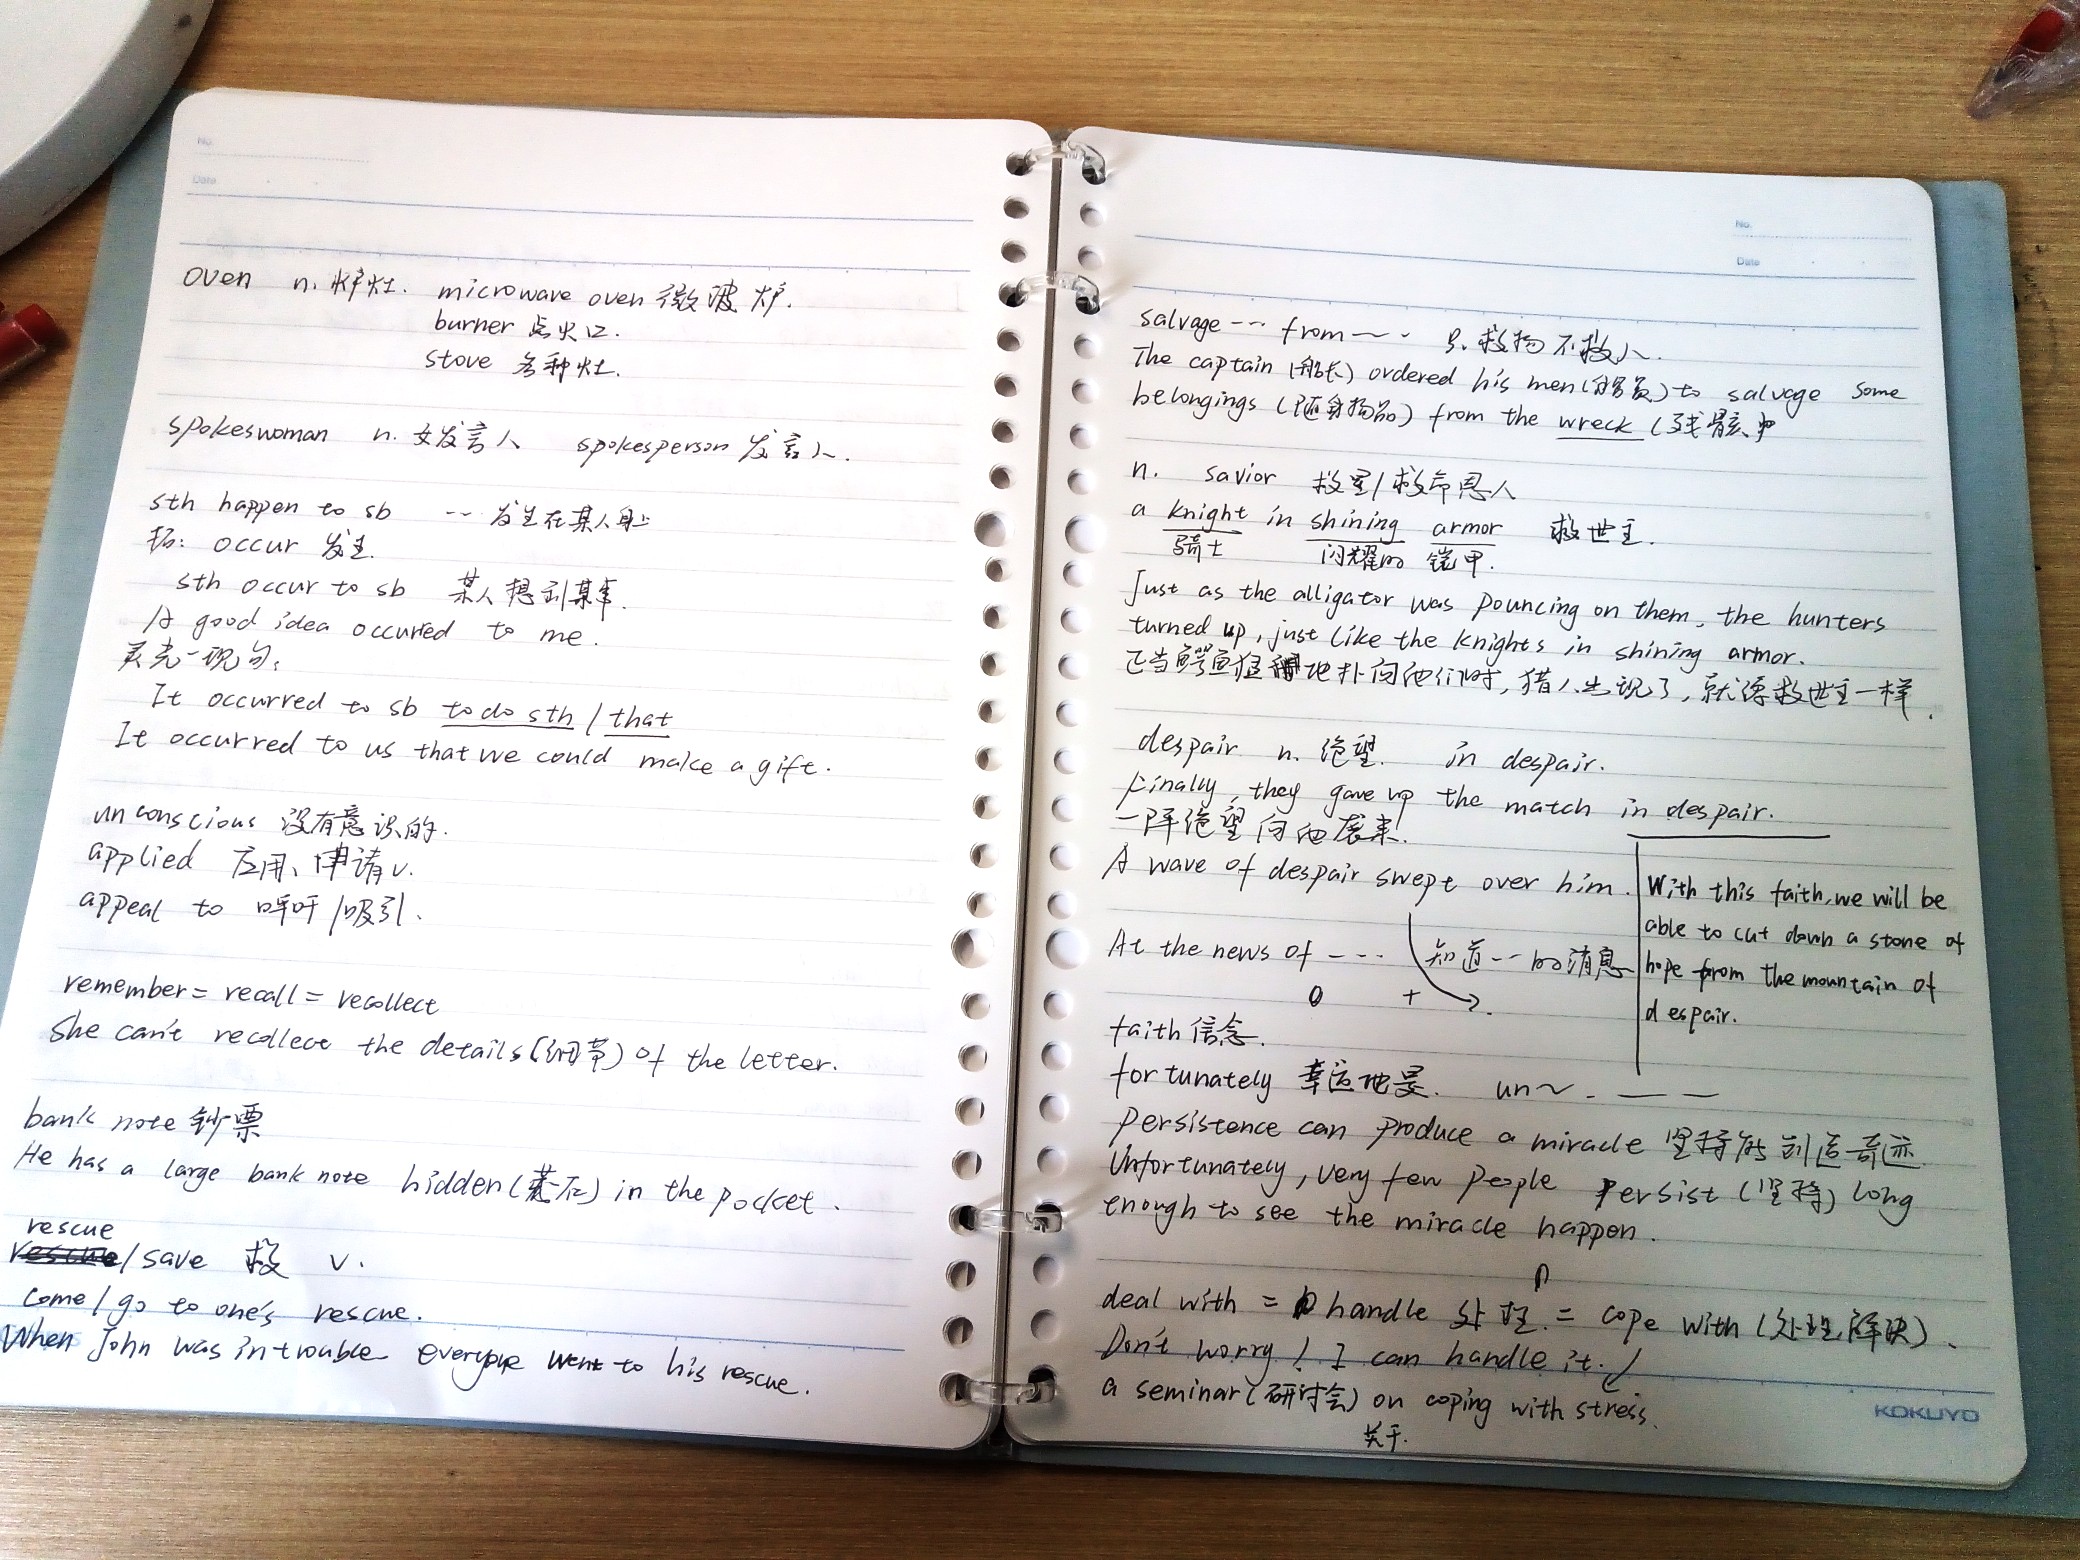 No.
Date
oven n. 炉灶. microwave oven 微波炉.
burner 点火口.
stove 各种灶.
spokeswoman n. 女发言人 spokesperson 发言人.
sth happen to sb --- 发生在某人身上
拓: occur 发生.
sth occur to sb 某人想到某事.
A good idea occurred to me.
灵光一现句:
It occurred to sb to do sth / that
It occurred to us that we could make a gift.
unconscious 没有意识的.
applied 应用、申请 v.
appeal to 呼吁/吸引.
remember = recall = recollect
She can't recollect the details (细节) of the letter.
bank note 钞票
He has a large bank note hidden (藏在) in the pocket.
rescue
/ save 救 v.
come / go to one's rescue.
When John was in trouble everyone went to his rescue.
No.
Date
salvage --- from --- 只救物不救人.
The captain (船长) ordered his men (船员) to salvage some
belongings (随身物品) from the wreck (残骸中
n. savior 救星/救命恩人
a knight in shining armor 救世主.
骑士 闪耀的 铠甲.
Just as the alligator was pouncing on them, the hunters
turned up, just like the knights in shining armor.
正当鳄鱼猛地扑向他们时, 猎人出现了, 就像救世主一样.
despair n. 绝望. in despair.
Finally, they gave up the match in despair.
一阵绝望向他袭来.
A wave of despair swept over him.
With this faith, we will be
able to cut down a stone of
hope from the mountain of
despair.
At the news of --- 知道--的消息
0 +
faith 信念.
fortunately 幸运地是. un~. — —
Persistence can produce a miracle 坚持能创造奇迹.
Unfortunately, very few people persist (坚持) long
enough to see the miracle happen.
deal with = handle 处理. = cope with (处理, 解决).
Don't worry! I can handle it.
a seminar (研讨会) on coping with stress.
关于.
KOKUYO